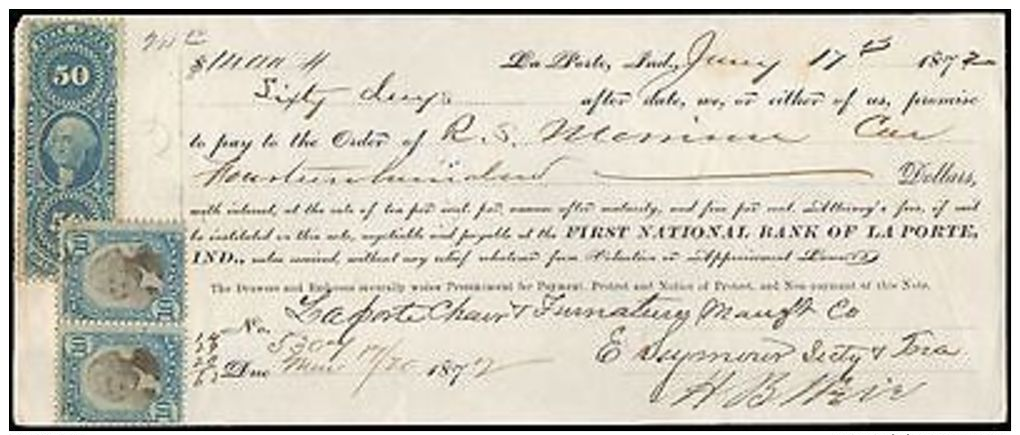 50
$1400 La Porte, Ind., Jany 17th 1872
Sixty days after date, we, or either of us, promise
to pay to the Order of R. S. Morrison Cas
Fourteen hundred Dollars,
with interest, at the rate of ten per cent. per annum after maturity, and five per cent. Attorney's fees, if suit
be instituted on this note, negotiable and payable at the FIRST NATIONAL BANK OF LA PORTE,
IND., value received, without any relief whatever from Valuation or Appraisement Laws.
The Drawers and Endorsers severally waive Presentment for Payment, Protest and Notice of Protest, and Non-payment of this Note.
10
No. 5304 Laporte Chair & Furnature Mangft Co
10
Due 19/20 1872 E Seymour Secty & Trea
H B Weir